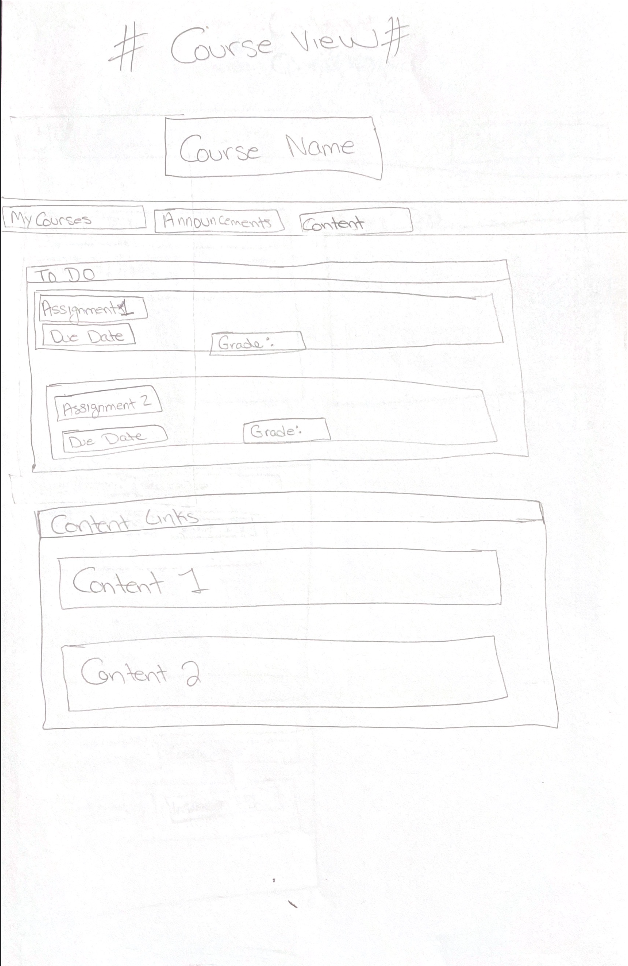 # Course View #
Course Name
My Courses Announcements Content
To DO
Assignment 1
Due Date Grade:
Assignment 2
Due Date Grade:
Content Links
Content 1
Content 2